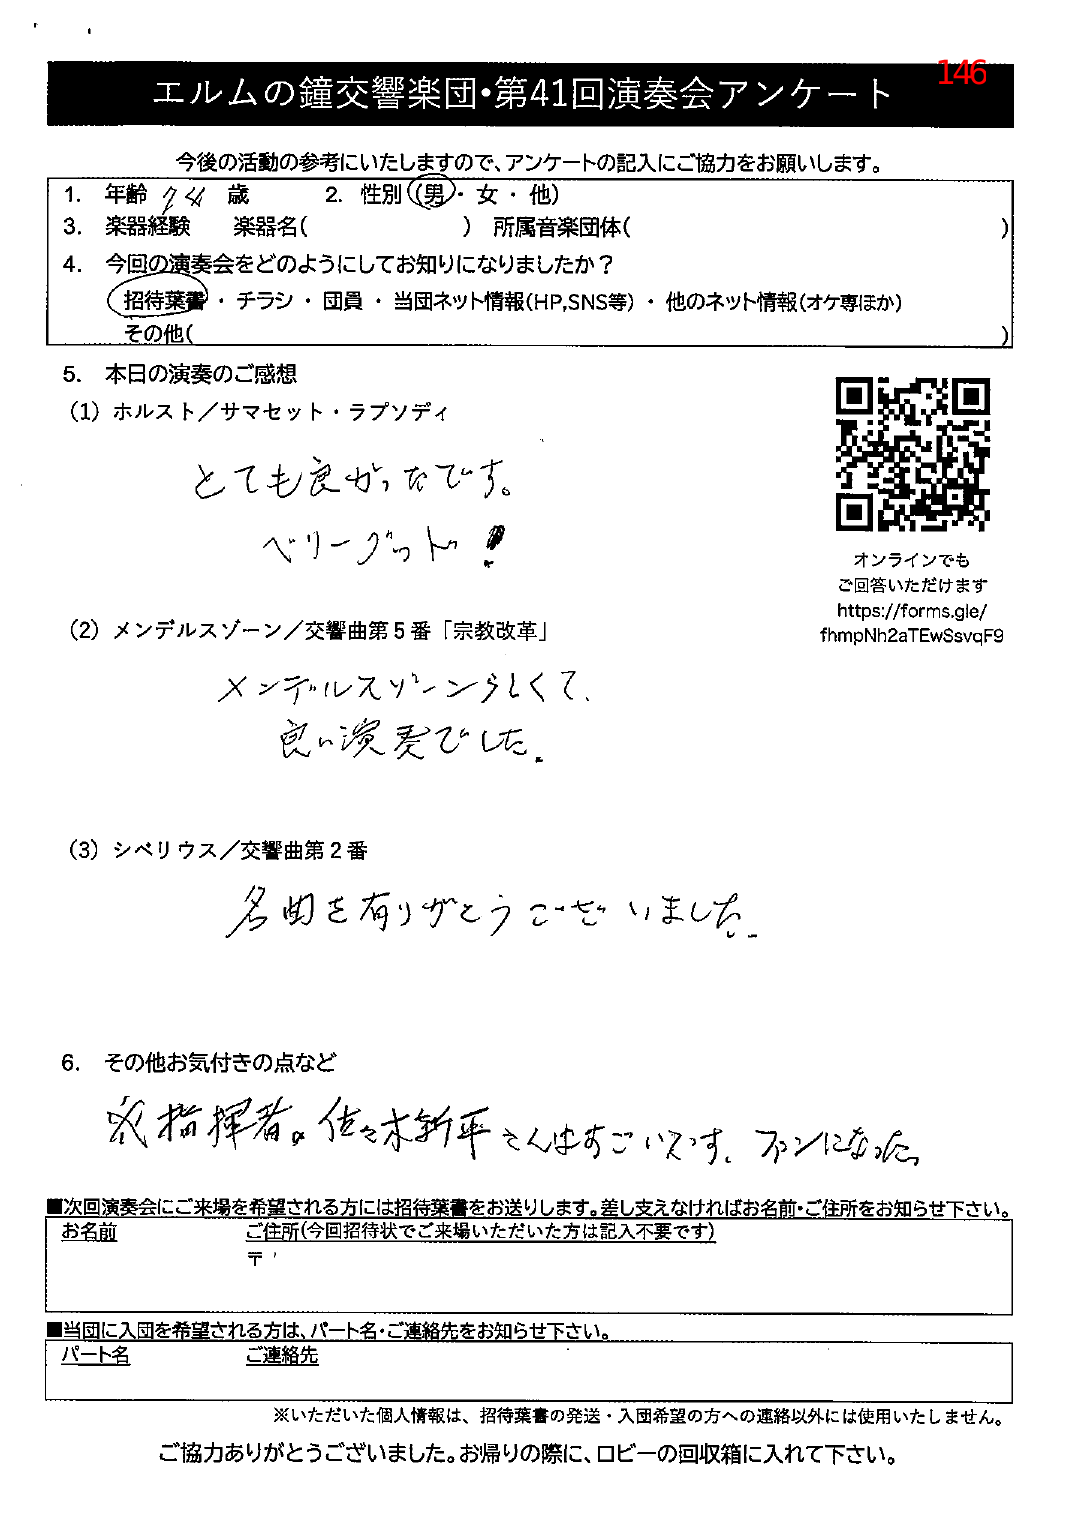 146
エルムの鐘交響楽団•第41回演奏会アンケート
今後の活動の参考にいたしますので、アンケートの記入にご協力をお願いします。
1. 年齢 74 歳 2. 性別 (男・女・他)
3. 楽器経験 楽器名( ) 所属音楽団体( )
4. 今回の演奏会をどのようにしてお知りになりましたか？
招待葉書・チラシ・団員・当団ネット情報(HP,SNS等)・他のネット情報(オケ専ほか)
その他( )
5. 本日の演奏のご感想
(1) ホルスト／サマセット・ラプソディ
とても良かったです。
ベリーグット！
オンラインでも
ご回答いただけます
https://forms.gle/
fhmpNh2aTEwSsvqF9
(2) メンデルスゾーン／交響曲第5番「宗教改革」
メンデルスゾーンらしくて、
良い演奏でした。
(3) シベリウス／交響曲第2番
名曲を有りがとうございました。
6. その他お気付きの点など
※指揮者。佐々木新平さんはすごいです。ファンになった。
■次回演奏会にご来場を希望される方には招待葉書をお送りします。差し支えなければお名前・ご住所をお知らせ下さい。
お名前 ご住所(今回招待状でご来場いただいた方は記入不要です)
〒
■当団に入団を希望される方は、パート名・ご連絡先をお知らせ下さい。
パート名 ご連絡先
※いただいた個人情報は、招待葉書の発送・入団希望の方への連絡以外には使用いたしません。
ご協力ありがとうございました。お帰りの際に、ロビーの回収箱に入れて下さい。